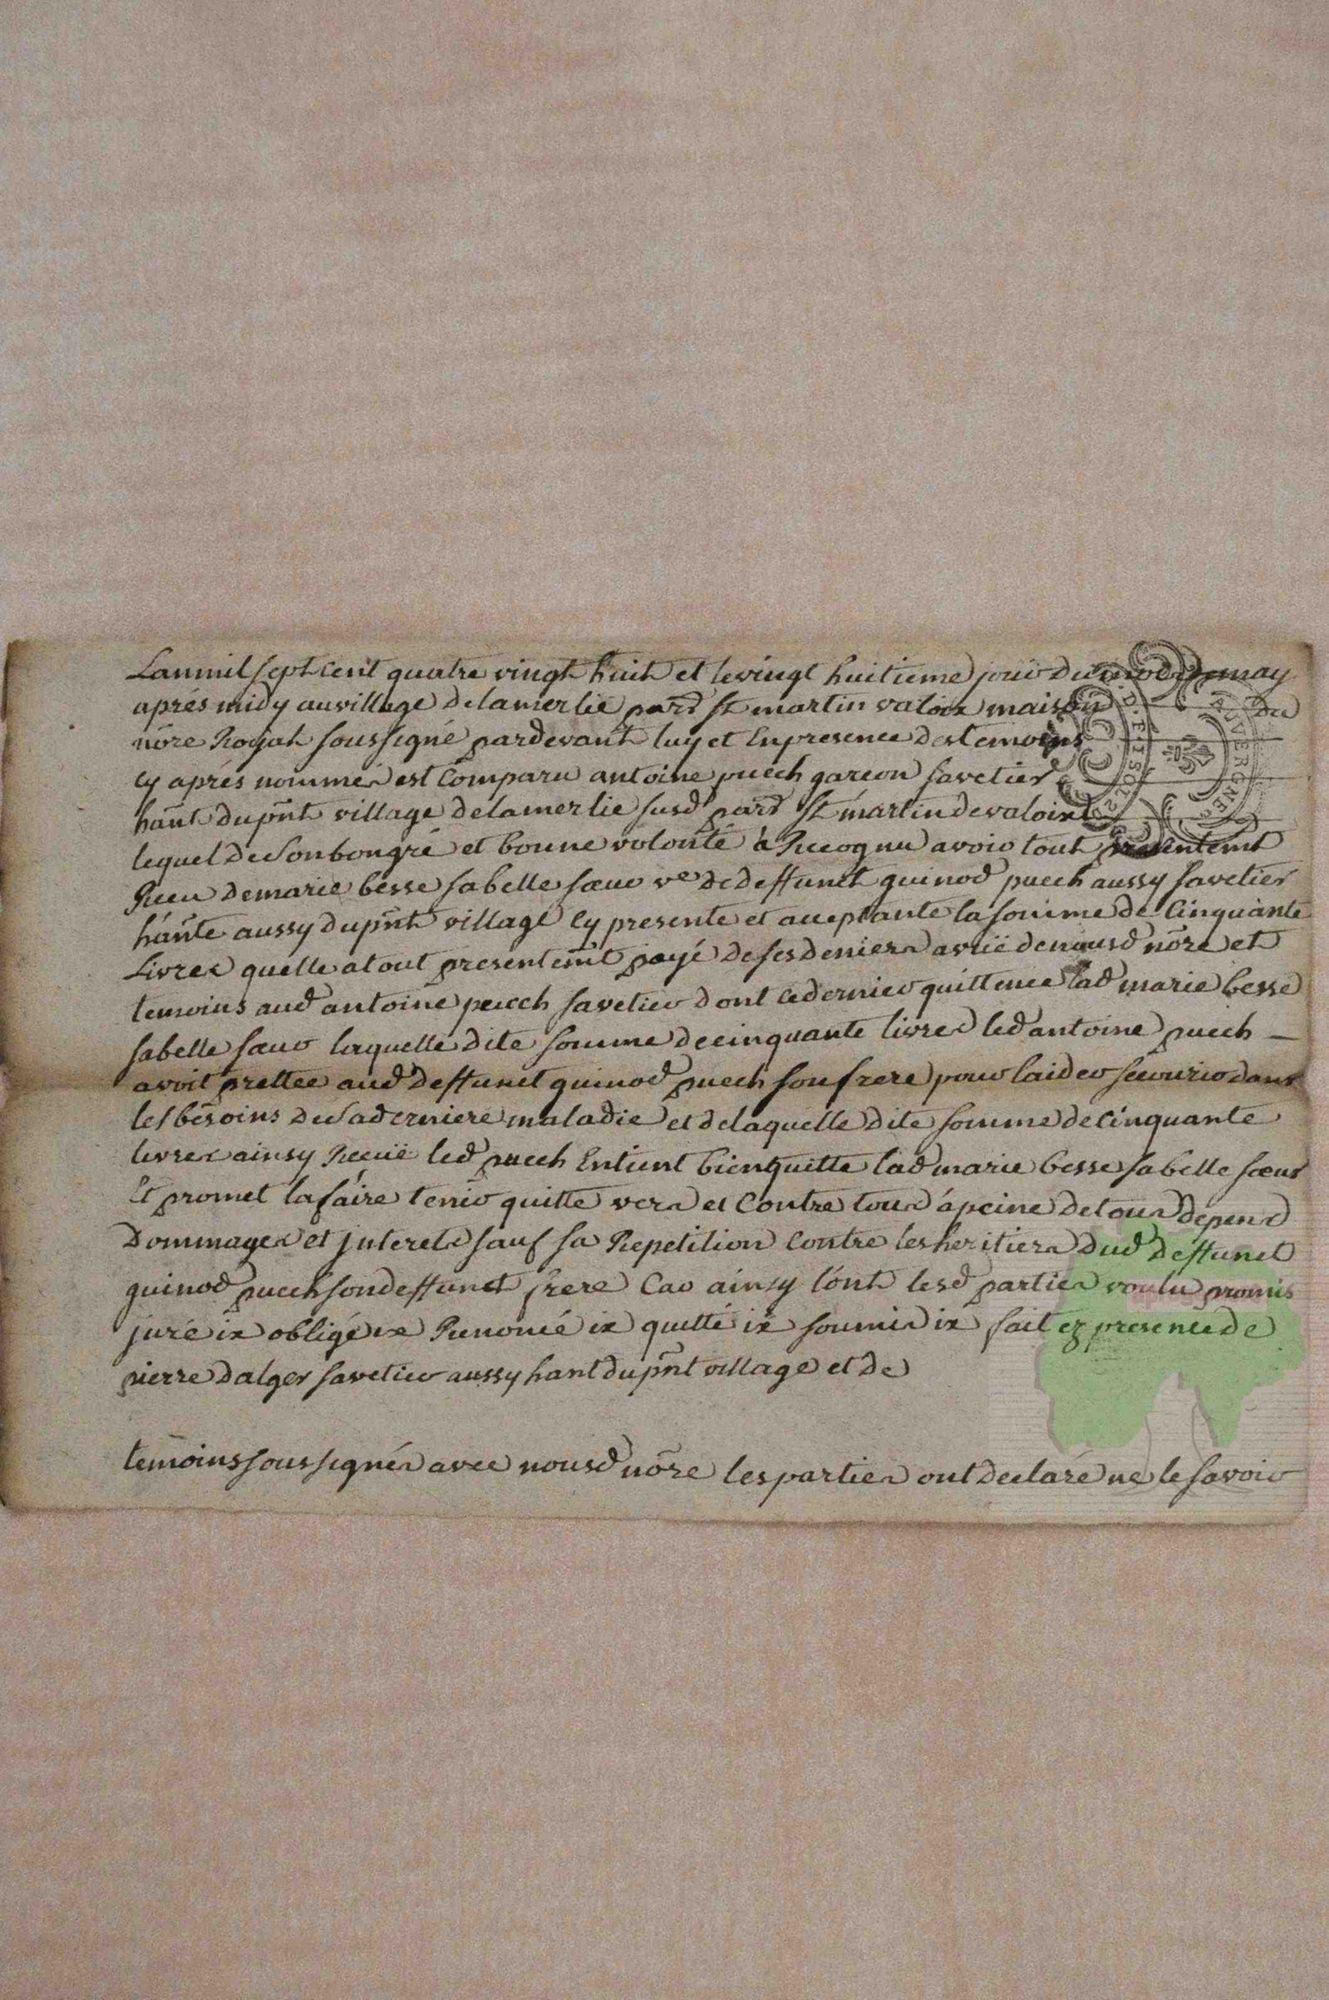 Lan mil sept cent quatre vingt huit et le vingt huitieme jour du mois de may
aprés midy au village delamerlie par.d St martin valoix maison du
nõre Royal soussigné pardevant luy et En presence des temoins
cy aprés nommés est Comparu antoine puech garcon savetier
hãnt du pñt village delamerlie susd par.d St martin de valoix
lequel de son bon gré et bonne volonté à Recognu avoir tout presentemt
Receu demarie besse sa belle sœur ve de deffunct guinod puech aussy savetier
hãnte aussy du pñt village cy presente et acceptante la somme de Cinquante
Livres quelle a tout presentemt payé de ses deniers a vüe de nousd nõre et
temoins aud antoine puech savetier dont ce dernier quittence lad marie besse
sa belle sœur laquelle dite somme decinquante livres led antoine puech
avoit prettée aud deffunct guinod puech son frere pour laider secourir dans
les besoins de sa derniere maladie et de laquelle dite somme de Cinquante
livres ainsy Receüe led puech Entient bien quitte lad marie besse sa belle sœur
Et promet la faire tenir quitte vers et Contre tous á peine de tous depens
Dommages et jnterets sauf sa Repetition Contre les heritiers dud deffunct
guinod puech son deffunct frere Car ainsy lont lesd parties voulu promis
juré ix obligé ix Renoncé ix quitté ix soumis ix fait ez presence de
pierre dalger savetier aussy hant du pñt village et de
temoins soussignés avec nousd nõre les parties ont declaré ne le savoir
AUVERGNE